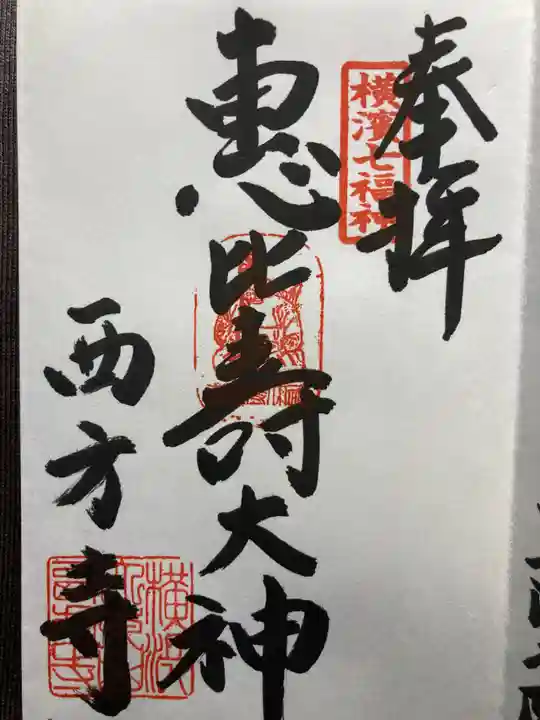 奉拝
横濱七福神
恵比壽大神
西方寺